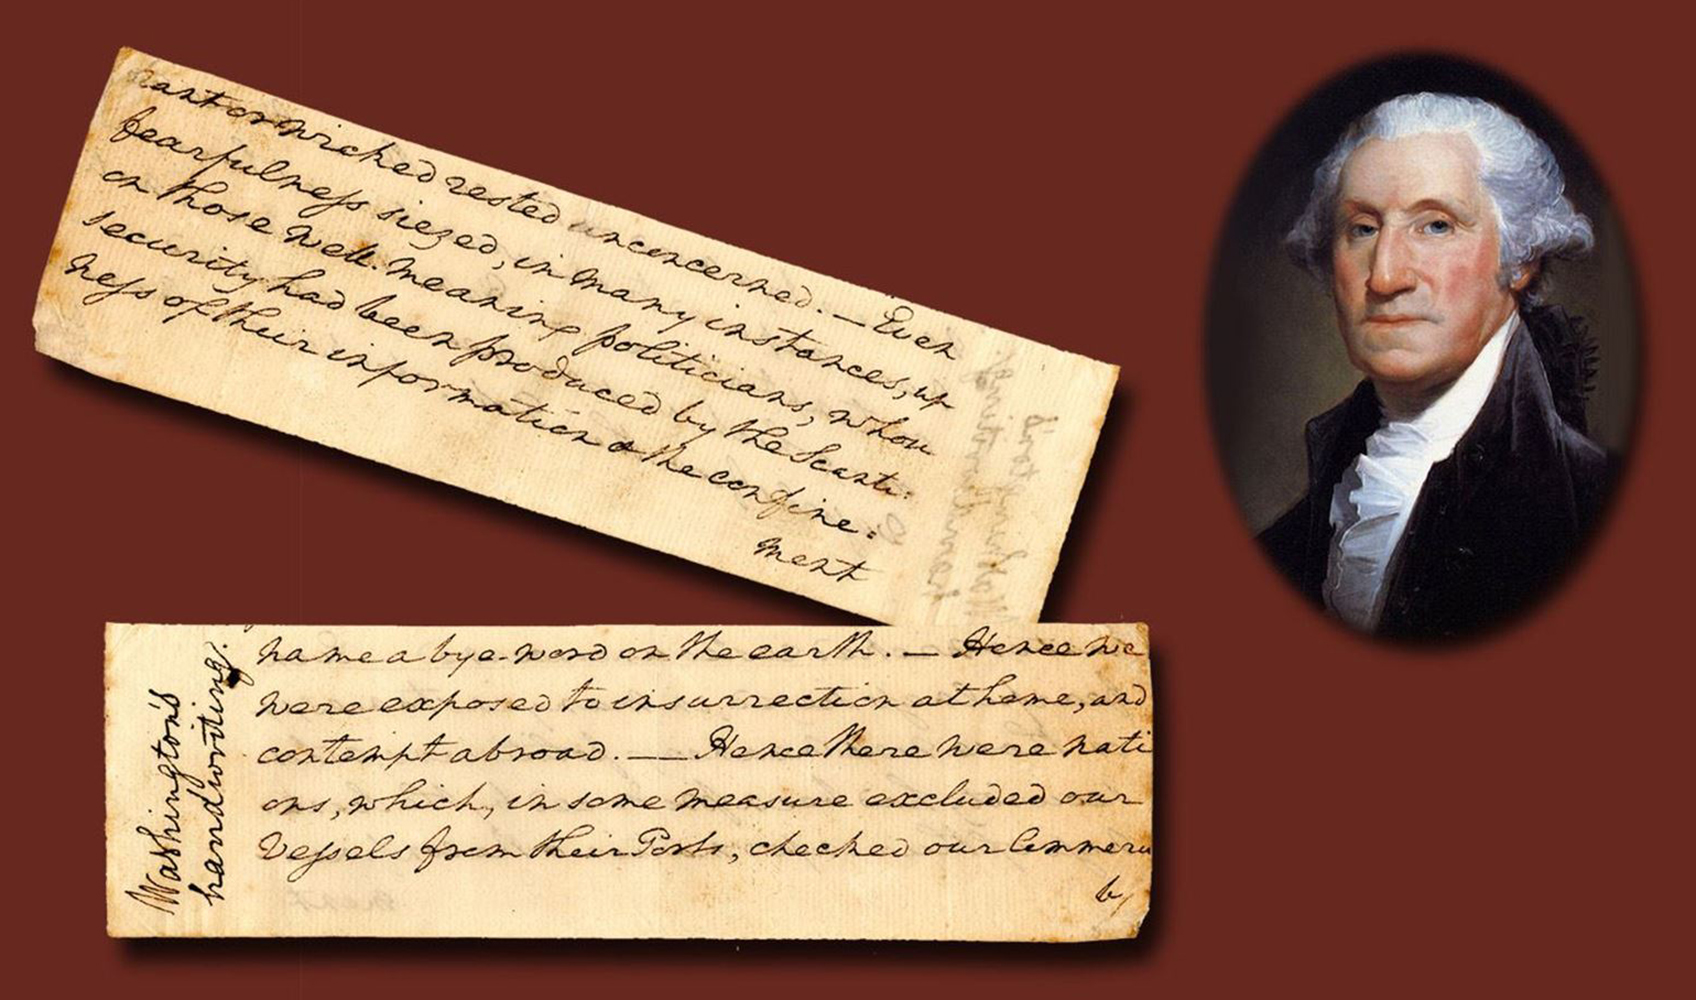 wicked rested unconcerned. — Even
fearfulness siezed, in many instances, up
on those well-meaning politicians, whose
security had been produced by the Scanti:
ness of their information & the confine:
ment
name a bye-word on the earth. — Hence we
were exposed to insurrection at home, and
contempt abroad. — Hence there were nati
ons, which, in some measure excluded our
Vessels from their Ports, checked our Commerce
by
Washington's
handwriting.